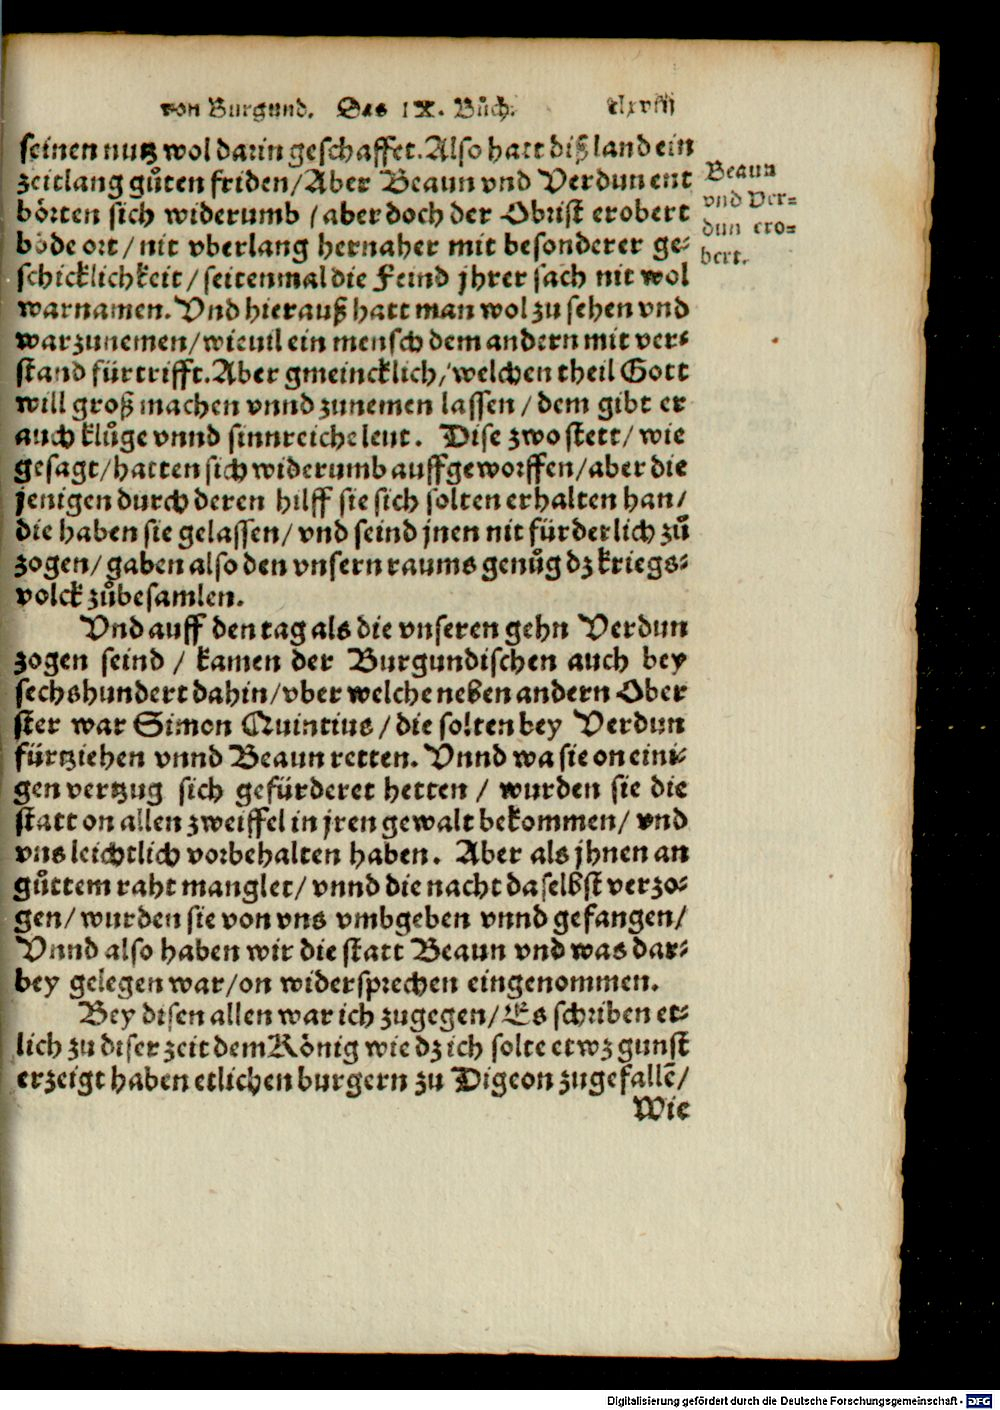 von Burgund. Das IX. Bůch.
seinen nutz wol darin geschaffet. Also hatt diß land ein
zeitlang gůten friden/Aber Beaun vnd Verdun ent
börten sich widerumb /aber doch der Obrist erobert
böde ort/ nit vberlang hernaher mit besonderer ge-
schicklichkeit/seitenmal die Feind jhrer sach nit wol
warnamen. Vnd hierauß hatt man wol zu sehen vnd
warzunemen/wieuil ein mensch dem andern mit ver-
stand fürtrifft. Aber gmeincklich/welchen theil Gott
will groß machen vnnd zunemen lassen/dem gibt er
auch klůge vnnd sinnreiche leut. Dise zwo stett/wie
gesagt/hatten sich widerumb auffgeworffen/aber die
jenigen durch deren hilff sie sich solten erhalten han/
die haben sie gelassen/vnd seind jnen nit fürderlich zů
zogen/gaben also den vnsern raums genůg dz kriegs-
volck zůbesamlen.
Vnd auff den tag als die vnseren gehn Verdun
zogen seind / kamen der Burgundischen auch bey
sechshundert dahin/vber welche neben andern Ober
ster war Simon Quintius/die solten bey Verdun
fürtziehen vnnd Beaun retten. Vnnd wa sie on eini-
gen vertzug sich gefürderet hetten / wurden sie die
statt on allen zweiffel in jren gewalt bekommen/vnd
vns leichtlich vorbehalten haben. Aber als jhnen an
gůttem raht manglet/vnnd die nacht daselbst verzo-
gen/wurden sie von vns vmbgeben vnnd gefangen/
Vnnd also haben wir die statt Beaun vnd was dar-
bey gelegen war/on widersprechen eingenommen.
Bey disen allen war ich zugegen/Es schriben et-
lich zu diser zeit dem König wie dz ich solte etwz gunst
erzeigt haben etlichen burgern zu Digeon zugefallē/
Wie
Beaun
vnd Ver-
dun ero-
bert.
Digitalisierung gefördert durch die Deutsche Forschungsgemeinschaft - DFG